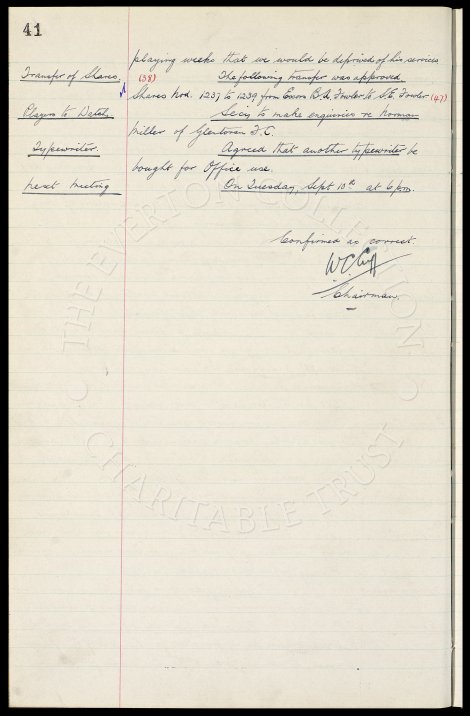 41
playing weeks that we would be deprived of his services
Transfer of Shares. (38) The following transfer was approved
Shares Nod. 1237 to 1239 from Exors B.A. Fowler to A.E. Fowler (47)
Players to Watch Secy to make enquiries re Norman
Miller of Glentoran F.C.
Typewriter. Agreed that another typewriter be
bought for Office use.
Next Meeting On Tuesday, Sept 10th at 6 pm.
Confirmed as correct.
W.C. Cuff
Chairman.
THE EVERTON COLLECTION
CHARITABLE TRUST